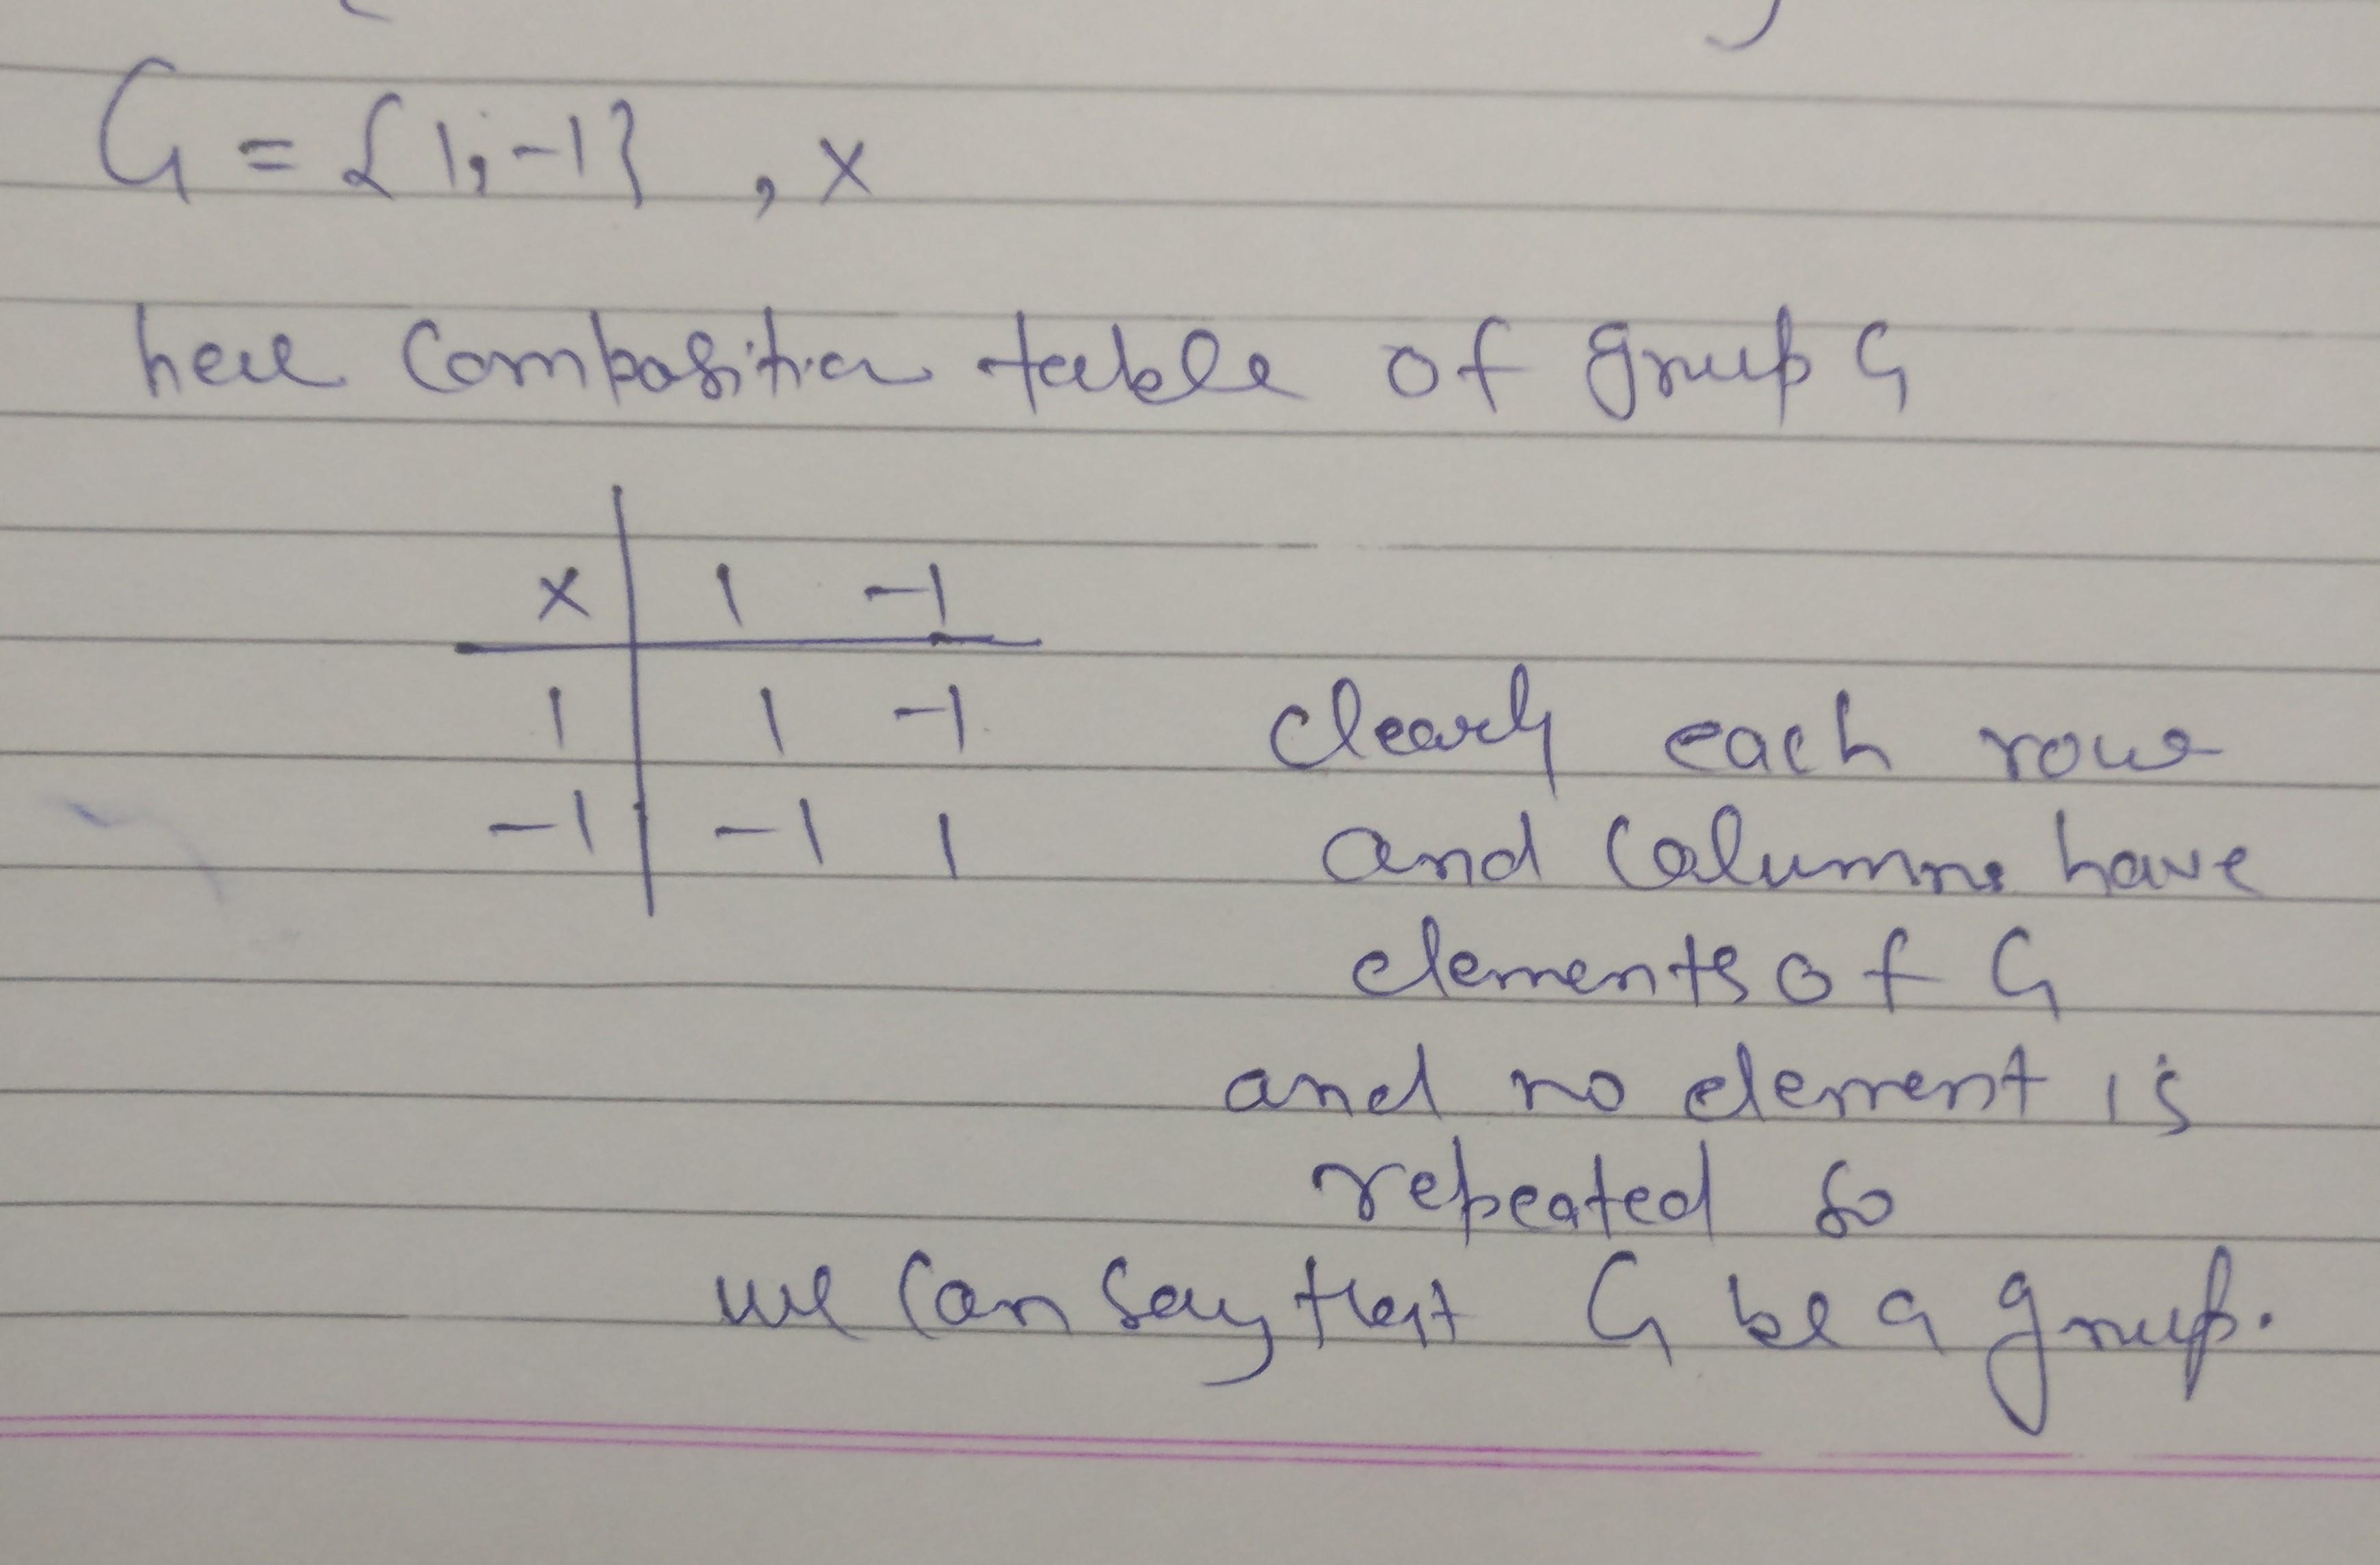 G = {1, -1} , x
here Composition table of group G
x | 1 -1
1 | 1 -1
-1 | -1 1
clearly each row
and Columns have
elements of G
and no element is
repeated so
we can say that G be a group.